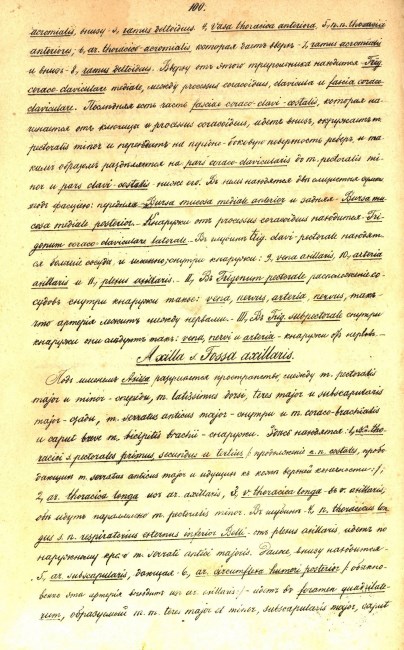 100.
acromialis, внизу - 3, ramus deltoideus. 4, vasa thoracica anteriora. 5, n.n. thoracici
anteriores; 6, ar. thoracico-acromialis, которая даетъ вверхъ - 7, ramus acromialis
и внизъ - 8, ramus deltoideus. Вверху отъ этого треугольника находится Trig.
coraco-claviculare mediale, между processus coracoideus, clavicula и fascia coraco-
clavicularis. Последняя есть часть fasciae coraco-clavi-costalis, которая на-
чинается отъ ключицы и processus coracoideus, идетъ внизъ, окружаетъ m.
pectoralis minor и переходитъ на передне-боковую поверхность реберъ, и та-
кимъ образомъ раздѣляется на pars coraco-clavicularis до m. pectoralis mi-
nor и pars clavi-costalis - ниже его. Въ ней находятся два слизистыхъ сумки
подъ фасціею: передняя - Bursa mucosa mediale anterior и задняя - Bursa mu-
cosa mediale posterior. - Кнаружи отъ processus coracoideus находится - Tri-
gonum coraco-claviculare laterale. - Въ trig. clavi-pectorale находят-
ся большіе сосуды, и именно, снутри кнаружи: 9, vena axillaris, 10, arteria
axillaris и 11, plexus axillaris. - II, Въ Trigonum pectorale расположеніе со-
судовъ снутри кнаружи такое: vena, nervus, arteria, nervus, такъ
что артерія лежитъ между нервами. - III, Въ Trig. subpectorale снутри
кнаружи они идутъ такъ: vena, nervi и arteria - кнаружи отъ нервовъ. -
Axilla s. Fossa axillaris.
Подъ именемъ Axilla разумѣется пространство, между m. pectoralis
major и minor - спереди, m. latissimus dorsi, teres major и subscapularis
major - сзади, m. serratus anticus major - снутри и m. coraco-brachialis
и caput breve m. bicipitis brachii - снаружи. Здѣсь находятся: 1, n. tho-
racici s. pectoralis primus, secundus и tertius (продолженіе n.n. costalis, прово-
дающіе m. serratus anticus major и идущіе къ кожѣ верхней конечности);
2, ar. thoracica longa изъ ar. axillaris, 3, v. thoracica longa - въ v. axillaris,
обѣ идутъ параллельно m. pectoralis minor. Въ глубинѣ - 4, n. thoracicus lon-
gus s. n. respiratorius externus inferior Belli - отъ plexus axillaris, идетъ по
наружному краю m. serrati antici majoris. Далѣе, внизу находится -
5, ar. subscapularis, дающая - 6, ar. circumflexa humeri posterior (обыкно-
венно эта артерія выходитъ изъ ar. axillaris) - идетъ въ foramen quadrilate-
rum, образуемый m. m. teres major et minor, subscapularis major, caput